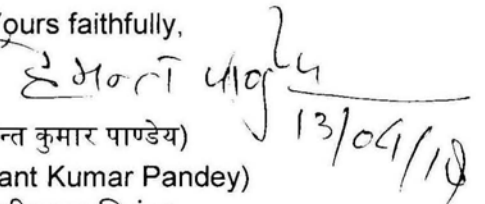 ours faithfully,
हेमन्त पाण्डेय
13/04/18
न्त कुमार पाण्डेय)
ant Kumar Pandey)